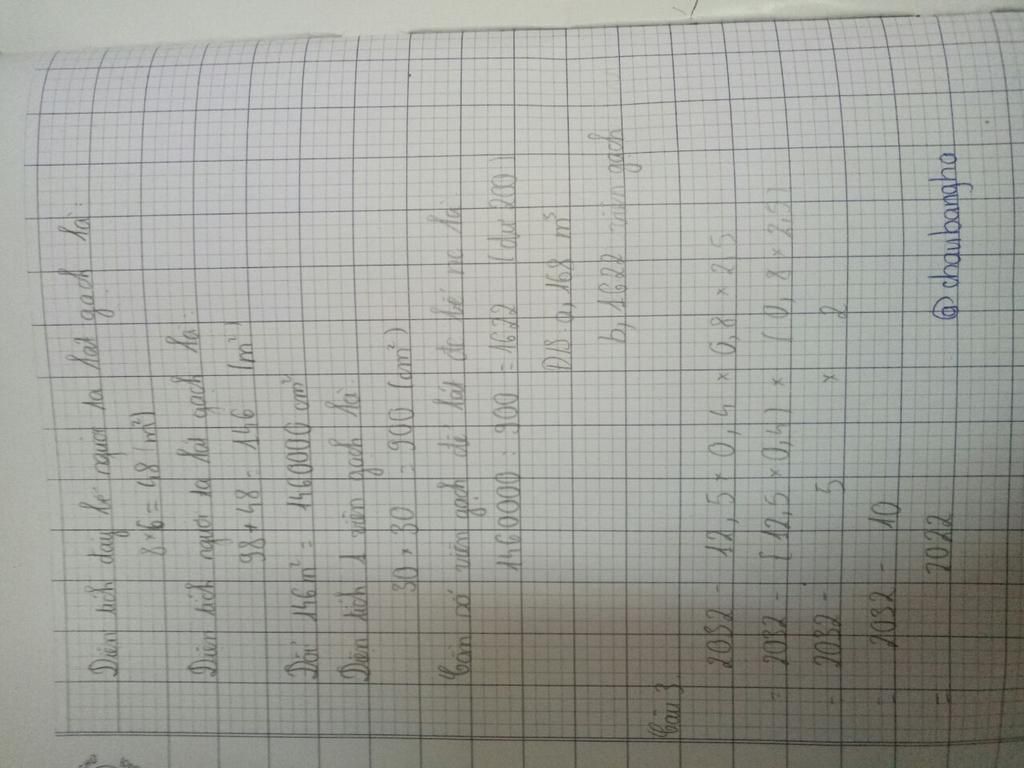 Diện tích đáy bể người ta lát gạch là:
8 × 6 = 48 (m²)
Diện tích người ta lát gạch là:
98 + 48 = 146 (m²)
Đổi 146 m² = 1460000 cm²
Diện tích 1 viên gạch là:
30 × 30 = 900 (cm²)
Cần số viên gạch để lát đc bể nc là
1460000 : 900 = 1622 (dư 200)
Đ/S a, 168 m³
b, 1622 viên gạch
Câu 3
2032 - 12,5 × 0,4 × 0,8 × 2,5
= 2032 - (12,5 × 0,4) × (0,8 × 2,5)
= 2032 - 5 × 2
= 2032 - 10
= 2022
@chaubangho